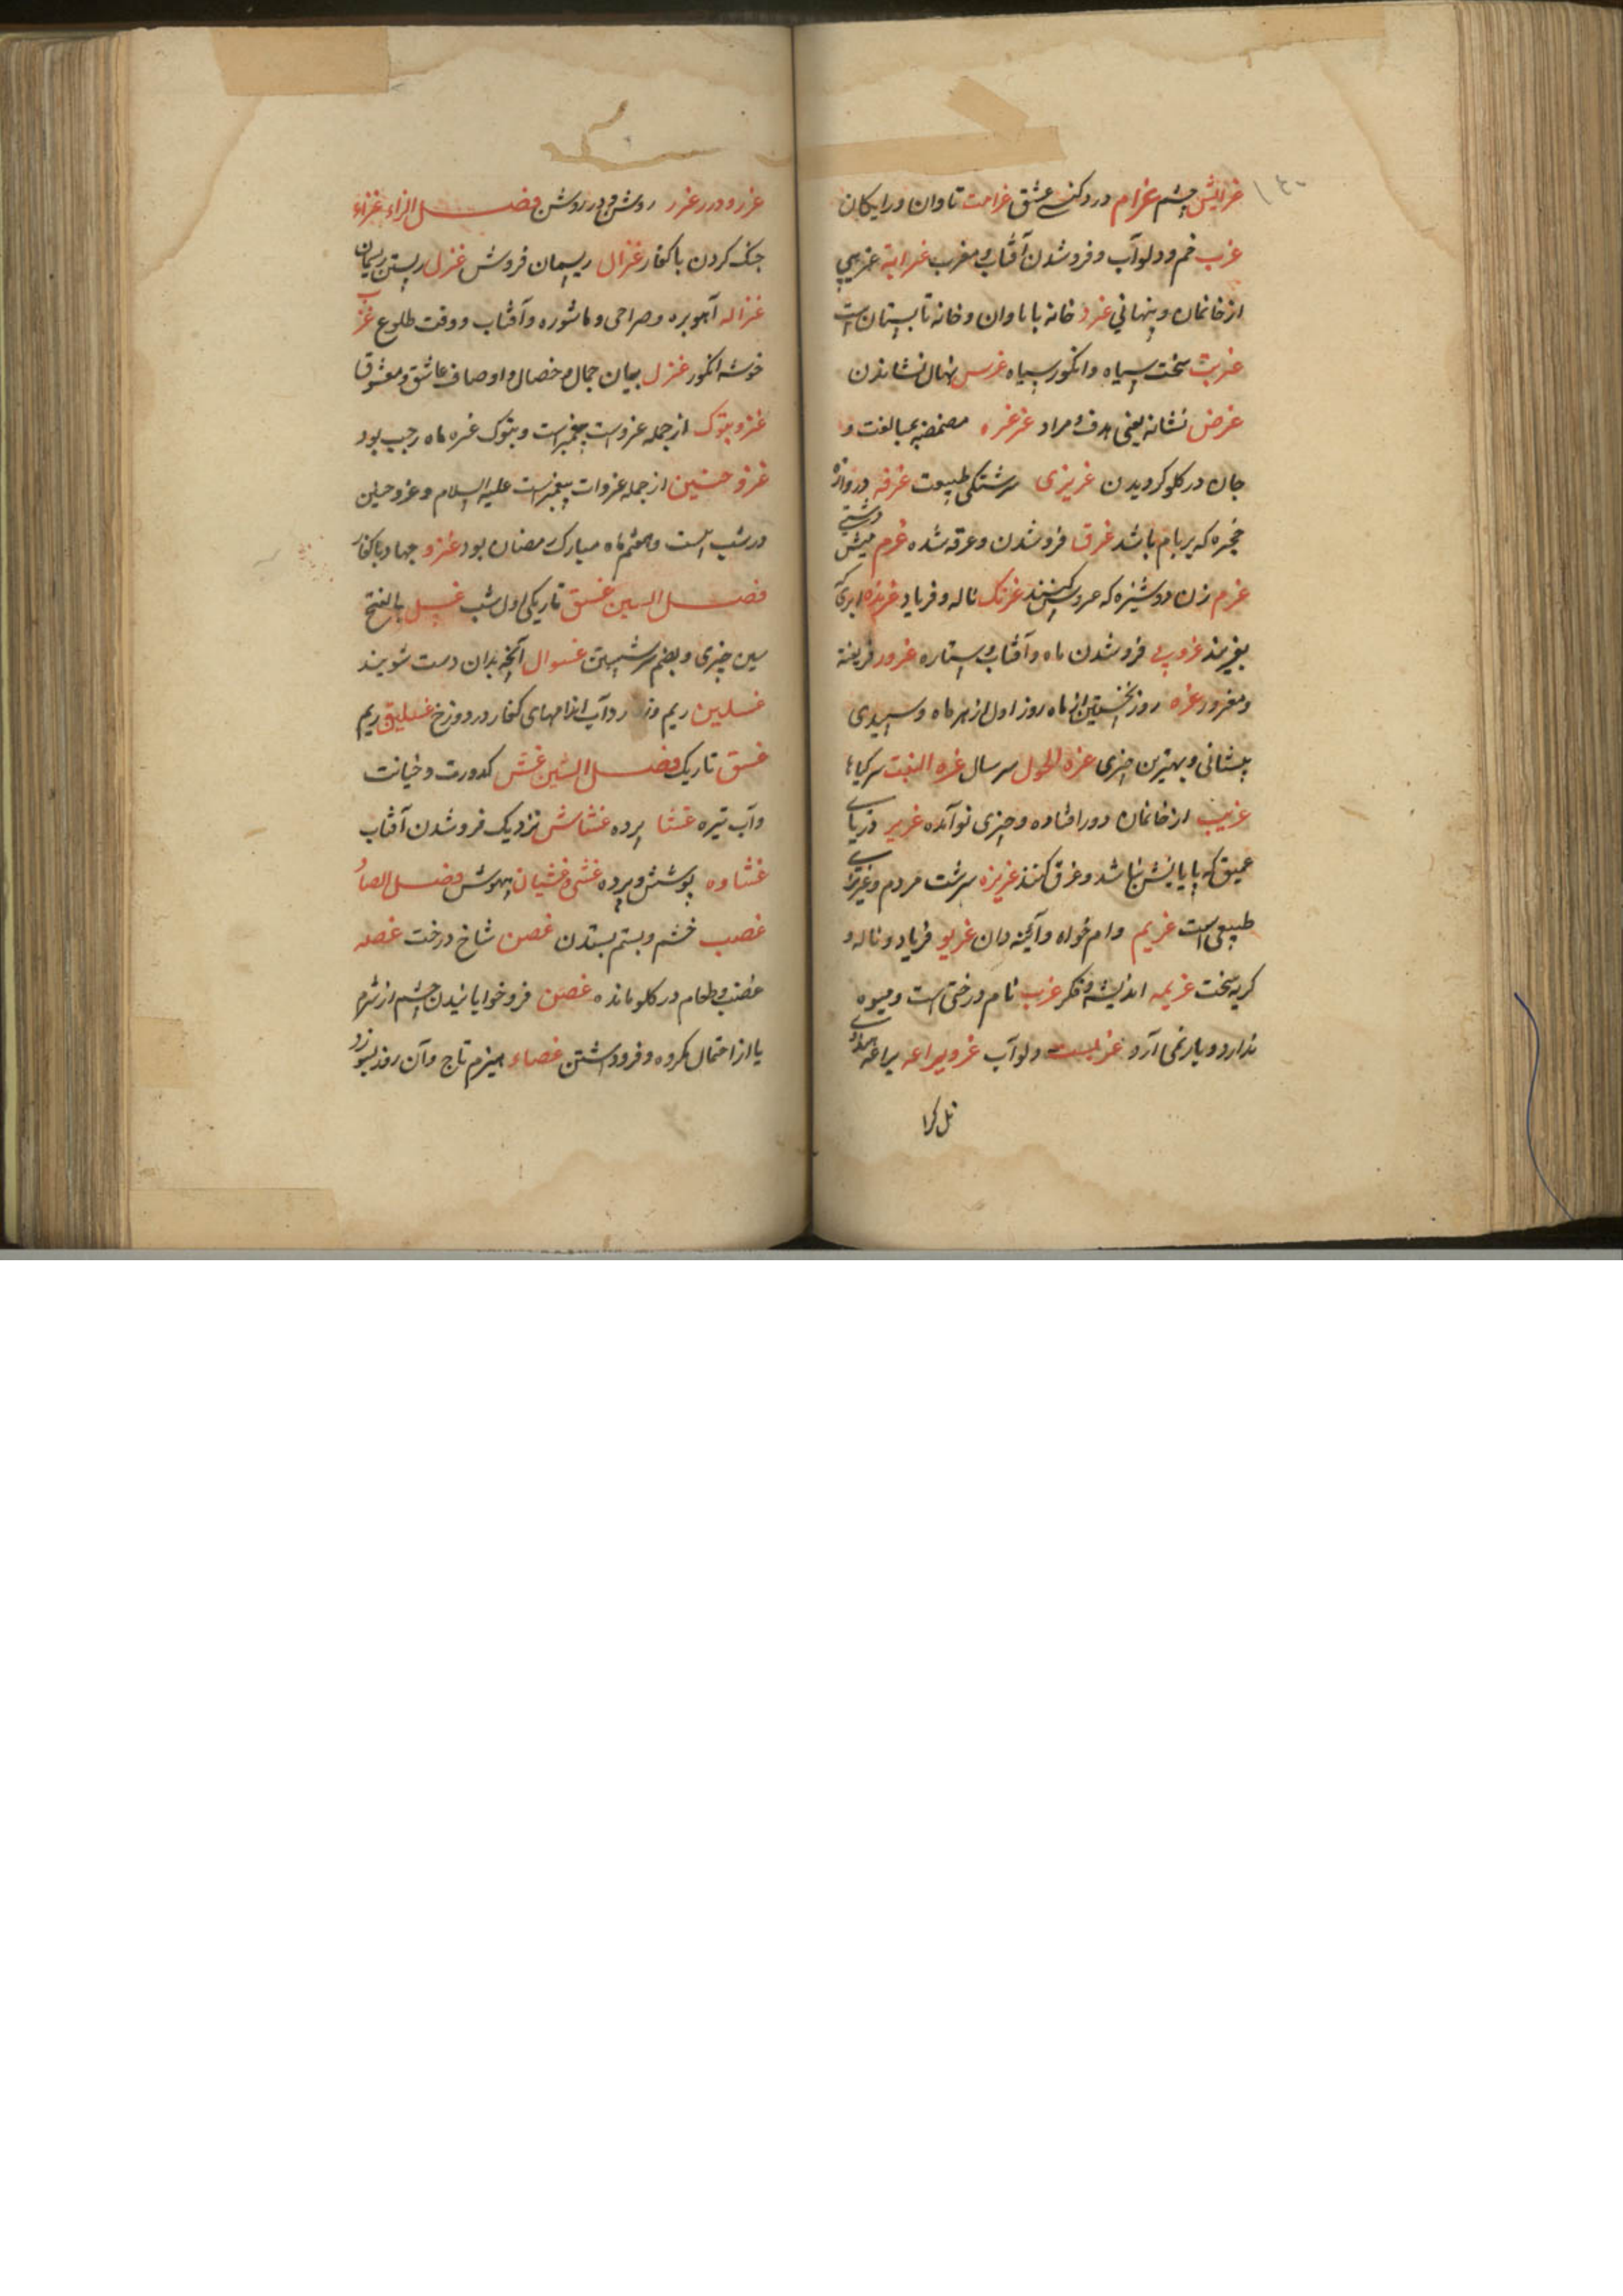 غرایش چشم غرام دردکنی عشق غرامت تاوان و رایکان
غرب خم و دلو آب و فروشدن آفتاب و مغرب غرابة غریبی
از خانمان و پنهانی غرد خانه با باوان و خانه تابستان است
غربت سخت سیاه و انکور سیاه غرس نهال نشاندن
غرض نشانه یعنی هدف و مراد غرغره مضمضه بمبالغت و
جان در کلو کردیدن غریزی سرشتکی طبیعت غرفه دروازه
حجره که بر بام باشد غرق فروشدن و غرقه شده غرم میش دشتی
غرم زن دوشیزه که عروس کنند غرنک ناله و فریاد غرنده ابری که
بغرند غروب فروشدن ماه و آفتاب و ستاره غرور فریفته
و مغرور غره روز نخستین از ماه روز اول از هر ماه و سپیدی
پیشانی و بهترین چیزی غرة الحول سر سال غرة النبت سر کیاها
غریب از خانمان دور افتاده و چیزی نو آمده غریر دریای
عمیق که پایابش نباشد و غرق کنند غریزه سرشت مردم و غیر
طبیعی است غریم وام خواه و آبگینه دان غریو فریاد و ناله و
کریه سخت غریمه اندیشه و فکر غرب نام درختی است و میوه
ندارد و بار نمی آرد دلو آب غرو یراعه یراعه
غرر و درر غرر روشن و در روشن فصل الزاء غزاء
جنک کردن با کفار غزال ریسمان فروش غزل ریستن ریسمان
غزاله آهوبره و صراحی و ماشوره و آفتاب و وقت طلوع غزب
خوشه انکور غزل بیان جمال و خصال و اوصاف عاشق و معشوق
غزو بتوک از جمله غزوات پیغمبر است و بتوک غره ماه رجب بود
غزو حنین از جمله غزوات پیغمبر است علیه السلام و غزو حنین
در شب بیست و هفتم ماه مبارک رمضان بود غزو جهاد با کفار
فصل السین غسق تاریکی اول شب غسل بالفتح
سین چیزی و بضم سر شستن غسوال آنچه بدان دست شویند
غسلین ریم و زرد آب اندامهای کفار در دوزخ غسلیق ریم
غسق تاریک فصل الشین غش کدورت و خیانت
و آب تیره غشا پرده غشاش نزدیک فروشدن آفتاب
غشاوه پوشش و پرده غشی و غشیان بیهوش فصل الصاد
غصب خشم و بستم بستدن غصن شاخ درخت غصه
غضب و طعام در کلو مانده غصن فرو خوابانیدن چشم از شرم
یا از احتمال مکروه و فرو داشتن غصاء هیزم تاج و آن زود بسوزد